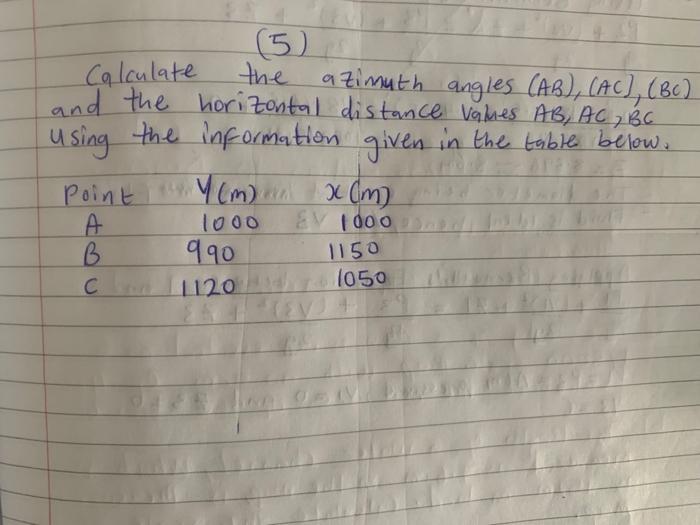 (5)
Calculate the azimuth angles (AB), (AC), (BC)
and the horizontal distance values AB, AC, BC
using the information given in the table below.
Point Y(m) x(m)
A 1000 1000
B 990 1150
C 1120 1050